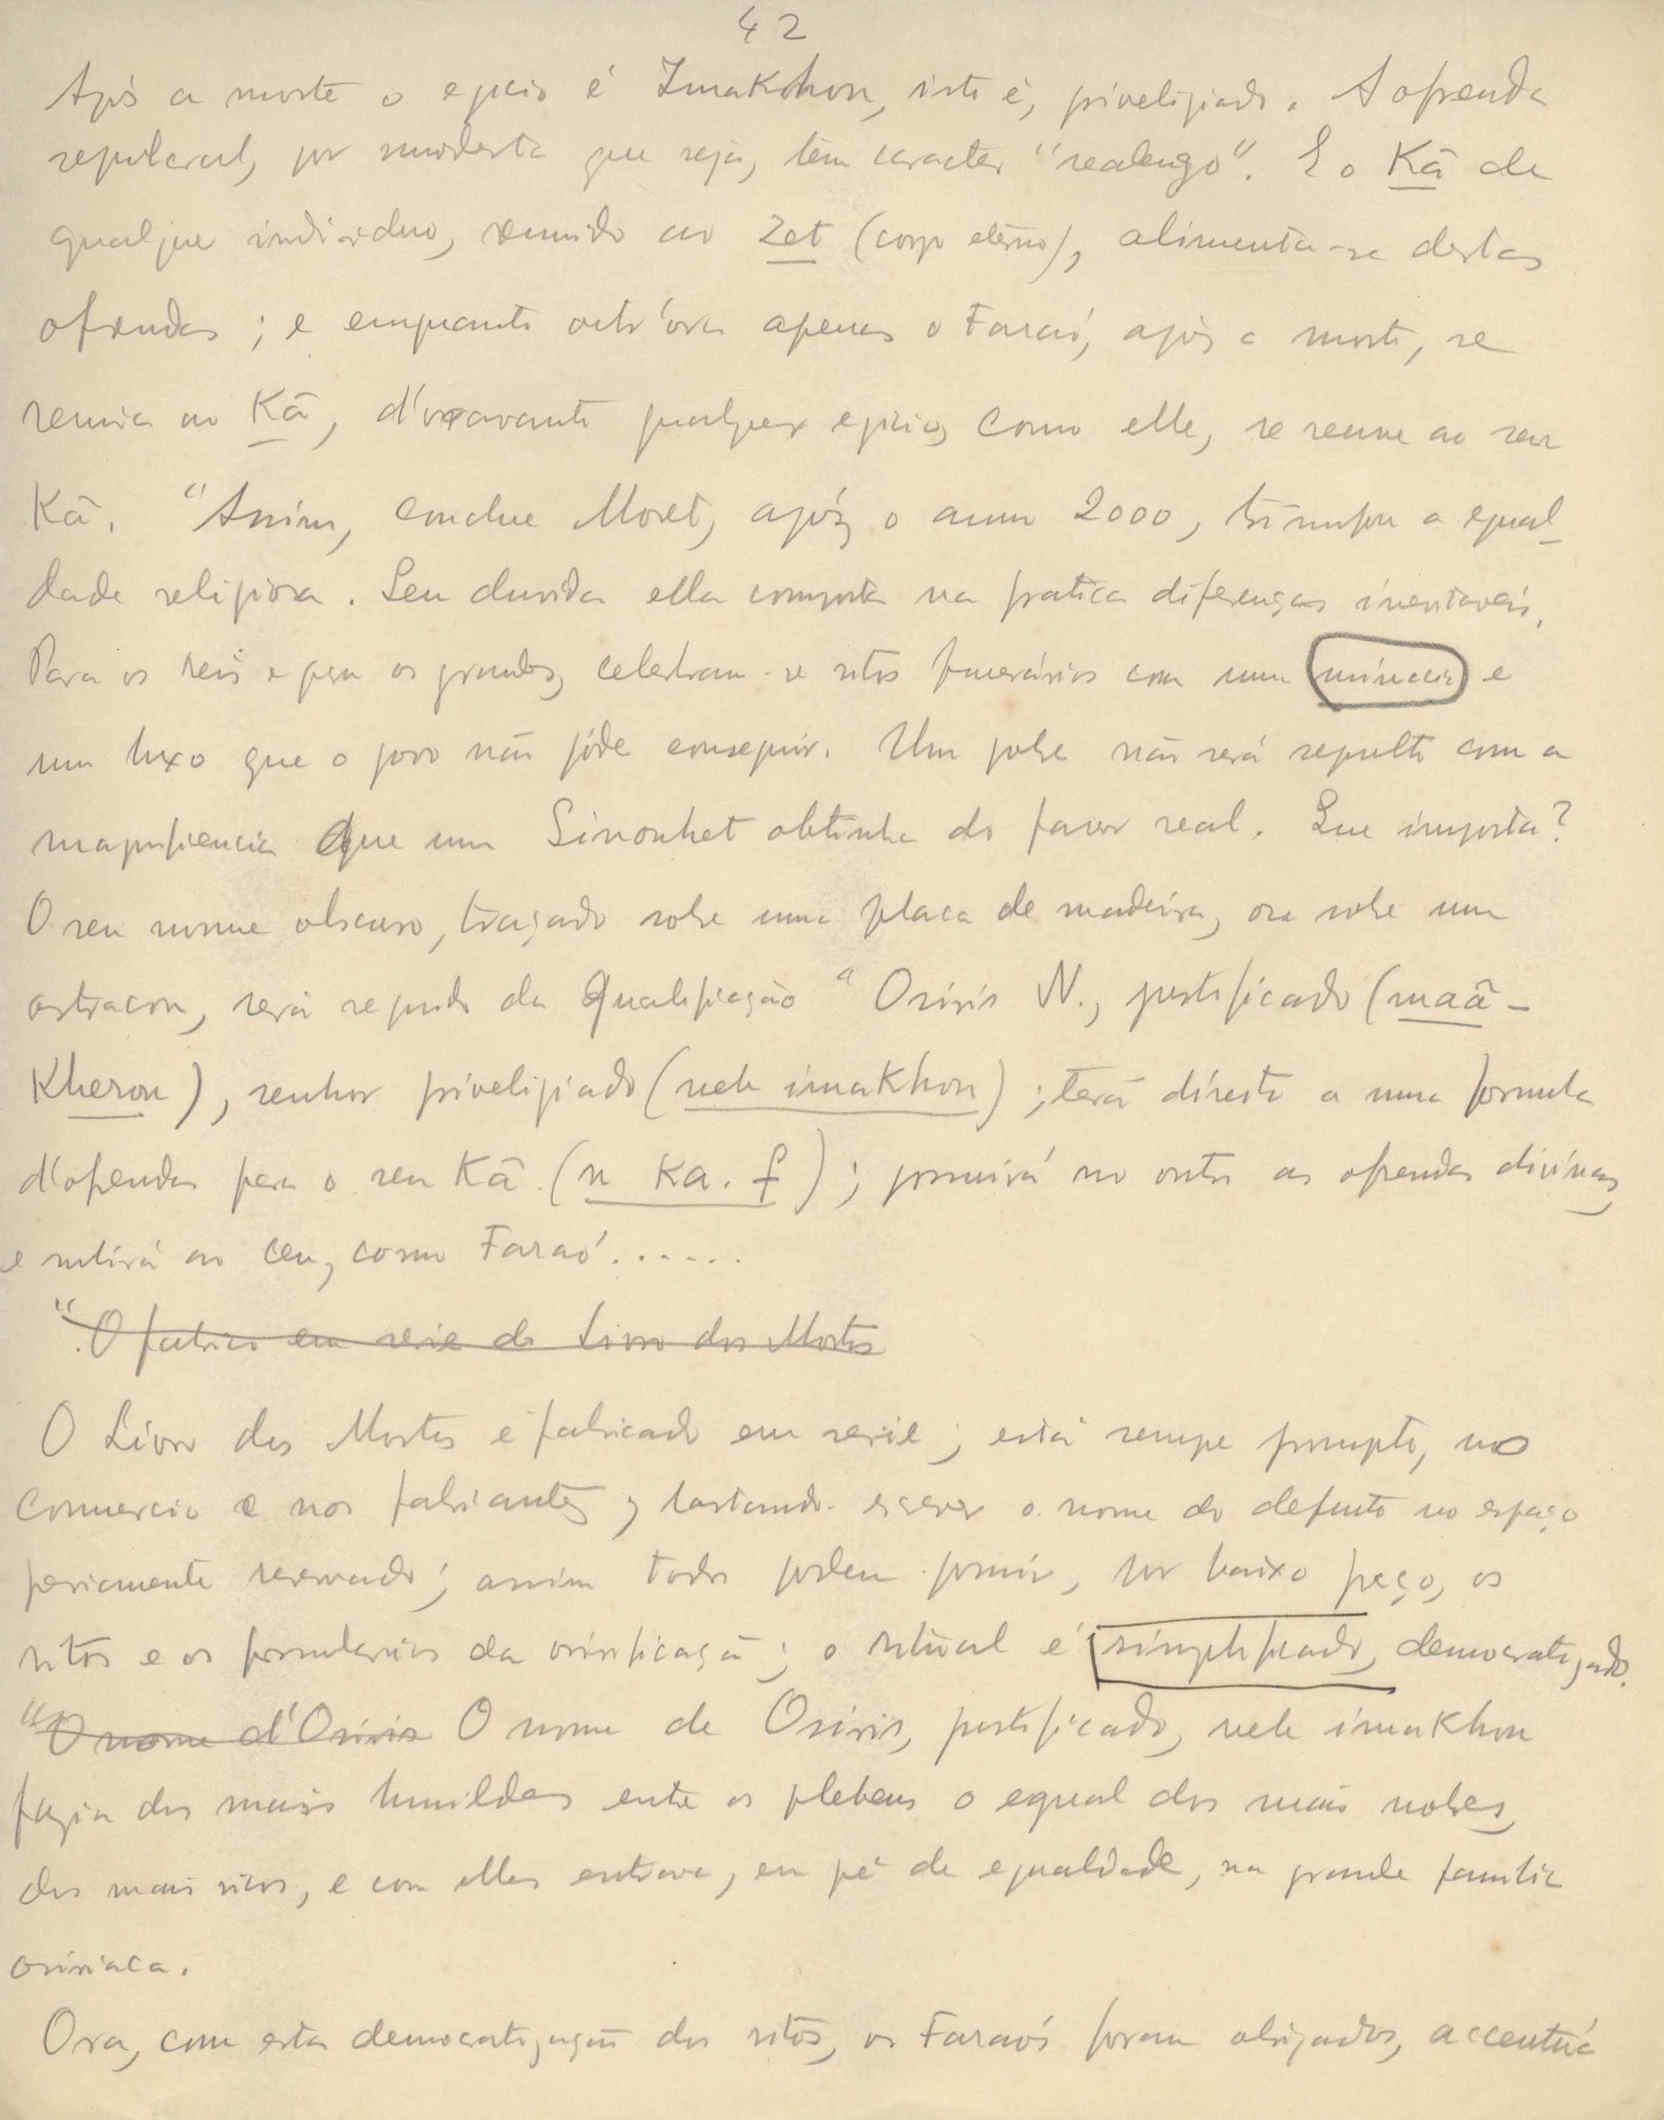 42
Após a morte o egicio é Imakhou, isto é, priveligiado. A ofrenda
sepulcral, por modesta que seja, tem caracter "realengo". E o Kâ de
qualquer individuo, reunido ao Zet (corpo eterno), alimenta-se destas
ofrendas; e emquanto outr'ora apenas o Faraó, após a morte, se
reunia ao Kâ, d'oravante qualquer egicio, como elle, se reune ao seu
Kâ. "Assim, conclue Moret, após o anno 2000, triunfou a egual_
dade religiosa. Sem duvida ella comporta na pratica diferenças inevitaveis.
Para os reis e para os grandes, celebram-se ritos funerários com uma minucia e
um luxo que o povo não póde conseguir. Um pobre não será sepulto com a
magnificencia que um Sinouhet obtinha do favor real. Que importa?
O seu nome obscuro, traçado sobre uma placa de madeira, ora sobre um
ostracon, será seguido da qualificação "Osiris N., justificado (maâ-
Kherou), senhor priveligiado (neb imakhou); terá direito a uma formula
d'ofrendas para o seu Kâ (n Ka. f); possuirá no outro as ofrendas divinas,
e subirá ao ceu, como Faraó......
"O fabrico em serie do Livro dos Mortos
O Livro dos Mortos é fabricado em serie; está sempre prompto, no
commercio e nos fabricantes, bastando escrever o nome do defunto no espaço
previamente reservado; assim todos podem possuir, por baixo preço, os
ritos e os formularios da osirificação; o ritual é simplificado, democratizado.
"O nome d'Osiris O nome de Osiris, justificado, neb imakhou
fazia dos mais humildes entre os plebeus o egual dos mais nobres,
dos mais ricos, e com elles entrava, em pé de egualdade, na grande familia
osiriaca.
Ora, com esta democratização dos ritos, os Faraós foram obrigados, accentúa